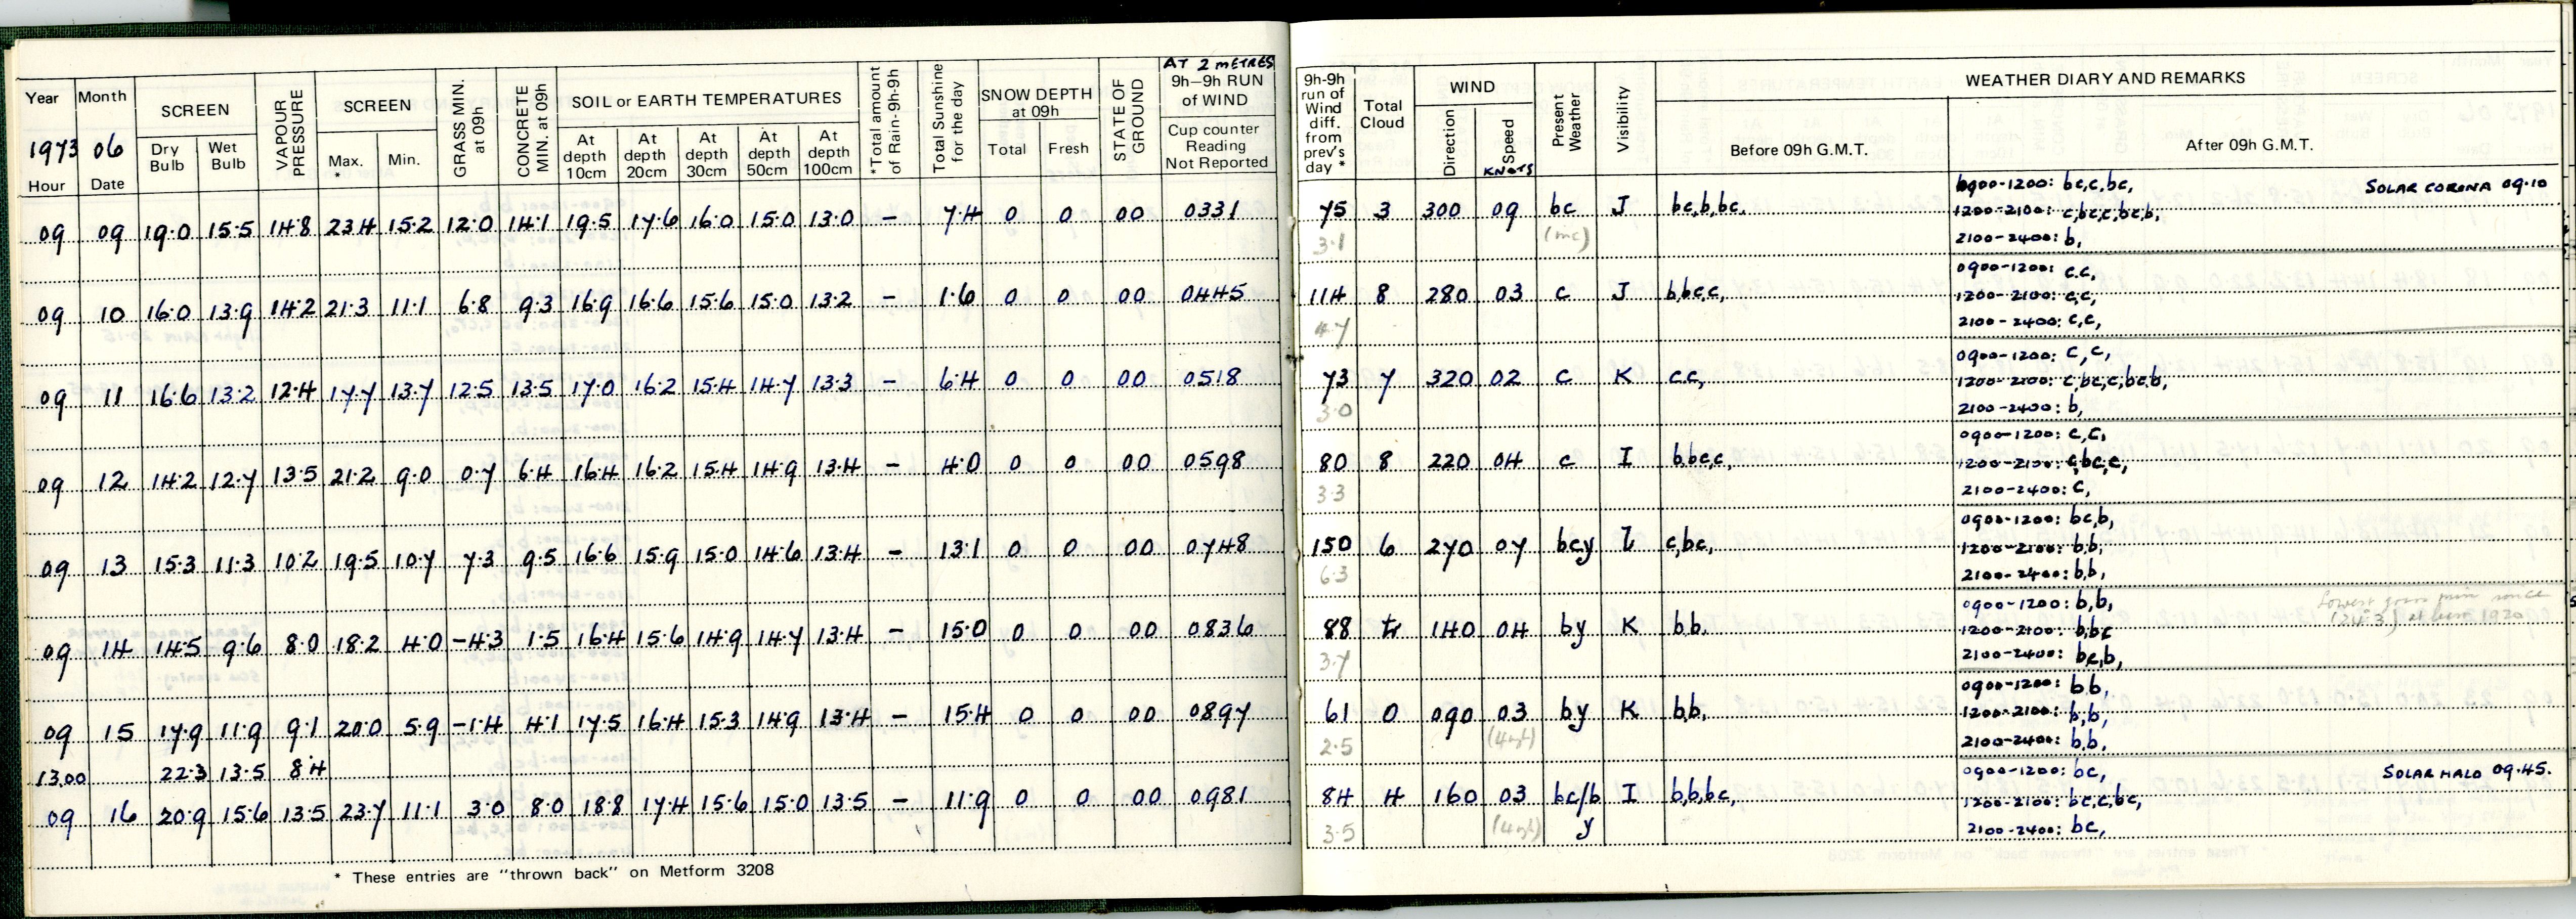 Year Month SCREEN VAPOUR PRESSURE SCREEN GRASS MIN. at 09h CONCRETE MIN. at 09h SOIL or EARTH TEMPERATURES *Total amount of Rain-9h-9h Total Sunshine for the day SNOW DEPTH at 09h STATE OF GROUND AT 2 METRES 9h–9h RUN of WIND
1973 06 Dry Bulb Wet Bulb Max. * Min. At depth 10cm At depth 20cm At depth 30cm At depth 50cm At depth 100cm Total Fresh Cup counter Reading Not Reported
Hour Date
09 09 19.0 15.5 14.8 23.4 15.2 12.0 14.1 19.5 17.6 16.0 15.0 13.0 – 7.4 0 0 00 0331
09 10 16.0 13.9 14.2 21.3 11.1 6.8 9.3 16.9 16.6 15.6 15.0 13.2 – 1.6 0 0 00 0445
09 11 16.6 13.2 12.4 17.7 13.7 12.5 13.5 17.0 16.2 15.4 14.7 13.3 – 6.4 0 0 00 0518
09 12 14.2 12.7 13.5 21.2 9.0 0.7 6.4 16.4 16.2 15.4 14.9 13.4 – 4.0 0 0 00 0598
09 13 15.3 11.3 10.2 19.5 10.7 7.3 9.5 16.6 15.9 15.0 14.6 13.4 – 13.1 0 0 00 0748
09 14 14.5 9.6 8.0 18.2 4.0 -4.3 1.5 16.4 15.6 14.9 14.7 13.4 – 15.0 0 0 00 0836
09 15 17.9 11.9 9.1 20.0 5.9 -1.4 4.1 17.5 16.4 15.3 14.9 13.4 – 15.4 0 0 00 0897
13.00 22.3 13.5 8.4
09 16 20.9 15.6 13.5 23.7 11.1 3.0 8.0 18.8 17.4 15.6 15.0 13.5 – 11.9 0 0 00 0981
* These entries are "thrown back" on Metform 3208
9h-9h run of Wind diff. from prev's day * Total Cloud WIND Present Weather Visibility WEATHER DIARY AND REMARKS
Direction Speed KNOTS Before 09h G.M.T. After 09h G.M.T.
0900-1200: bc,c,bc, SOLAR CORONA 09.10
75 3 300 09 bc J bc,b,bc, 1200-2100: c,bc,c,bc,b,
3.1 2100-2400: b,
0900-1200: c.c,
114 8 280 03 c J b,bc,c, 1200-2100: c,c,
4.7 2100-2400: c,c,
0900-1200: c,c,
73 7 320 02 c K c.c, 1200-2100: c,bc,c,bc,b,
3.0 2100-2400: b,
0900-1200: c,c,
80 8 220 04 c I b,bc,c, 1200-2100: c,bc,c,
3.3 2100-2400: c,
0900-1200: bc,b,
150 6 270 07 bcy c,bc, 1200-2100: b,b,
6.3 2100-2400: b,b,
0900-1200: b,b, Lowest grass min since
88 tr 140 04 by K b.b. 1200-2100: b,bc 1920
3.7 2100-2400: bc,b,
0900-1200: b.b,
61 0 090 03 by K b.b. 1200-2100: b,b,
2.5 2100-2400: b.b.
0900-1200: bc, SOLAR HALO 09.45.
84 4 160 03 bc/b y I b,b,bc, 1200-2100: bc,c,bc,
3.5 2100-2400: bc,